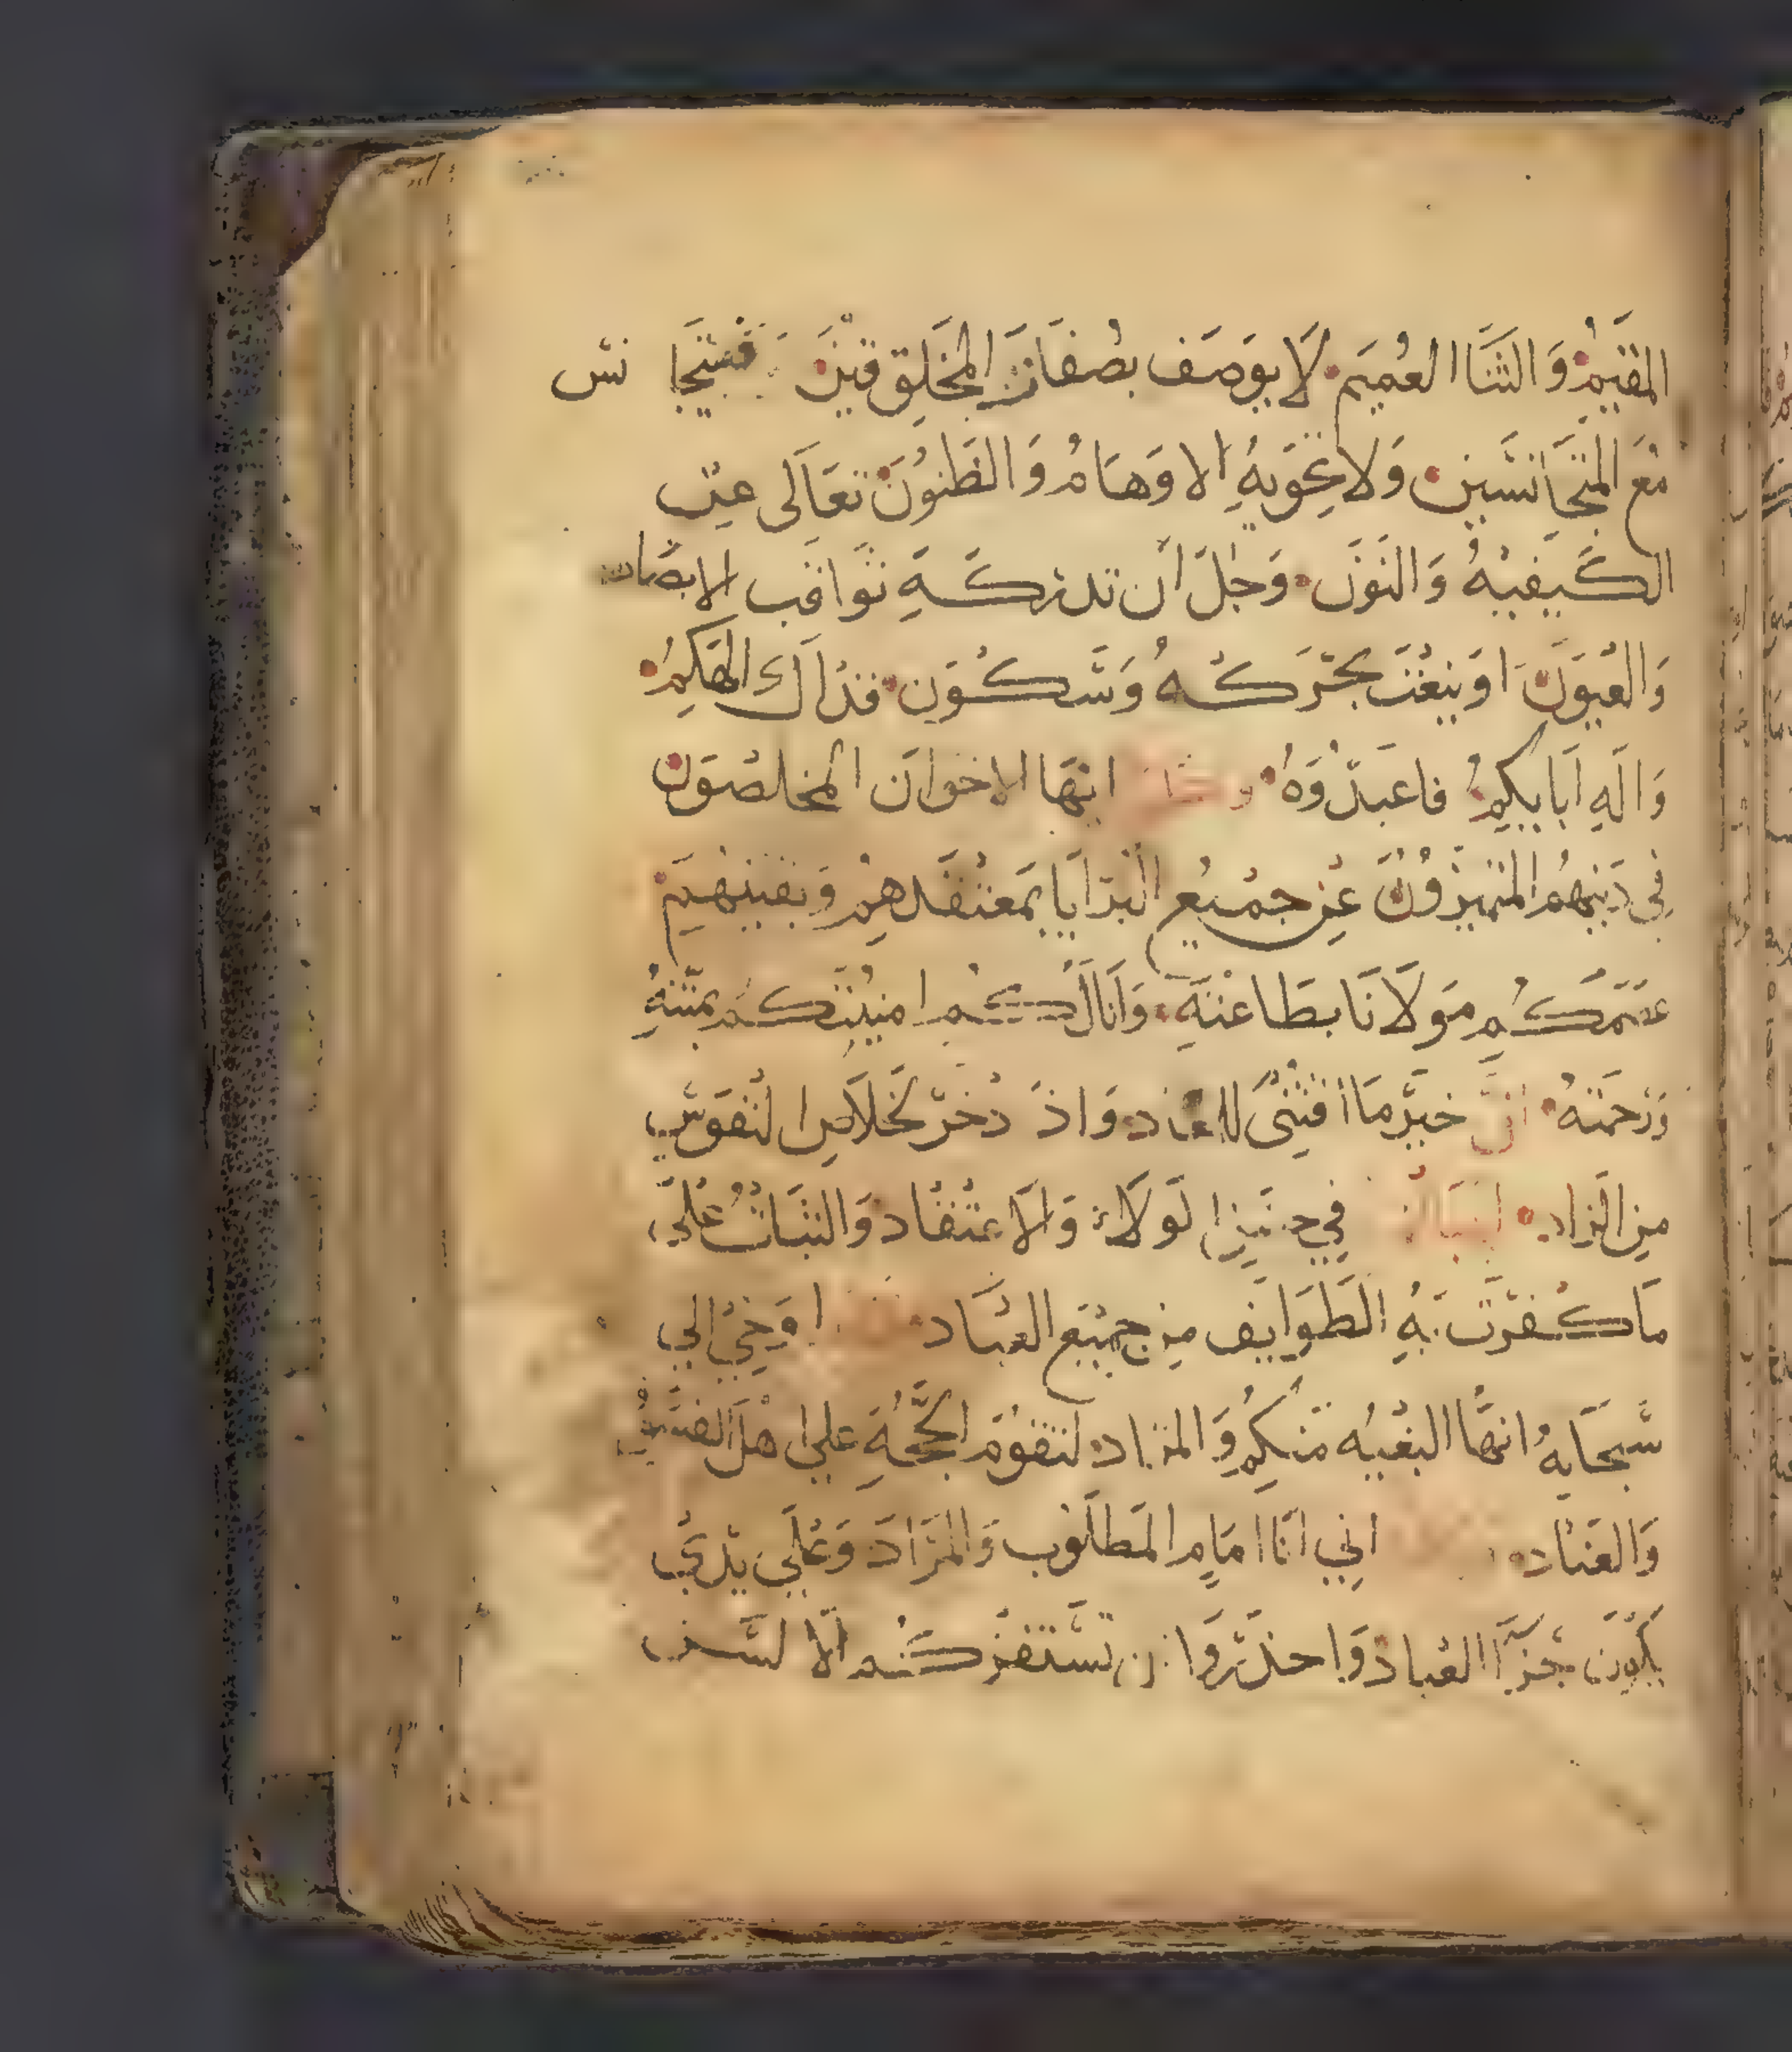 المقيم والثنا العميم لا يوصف بصفات المخلوقين فيتجا نس
مع المتجانسين ولا تحويه الاوهام والظنون تعالى عن
الكيفيه والنون وجل أن تدركه ثواقب الابصار
والعيون او ينعت بحركه وسكون فذالك الهكم
واله ابايكم فاعبدوه ايها الاخوان المخلصون
في دينهم المتميزون عن جميع البرايا بمعتقدهم ويقينهم
عصمكم مولانا بطاعته وانالكم امنيتكم بمنته
ورحمته ان خير ما اقتنى للمعاد واذ دخر لخلاص النفوس
من الزاد في الاعتقاد والثبات على
ما كفرت به الطوايف من جميع العباد اوحي الي
سبحانه انها البغيه منكم والمراد لتقوم الحجة علي اهل
والعناد اني انا امام المطلوب والمراد وعلى يدي
يكون جزآ العباد واحذروا ان تستفزكم الالسن